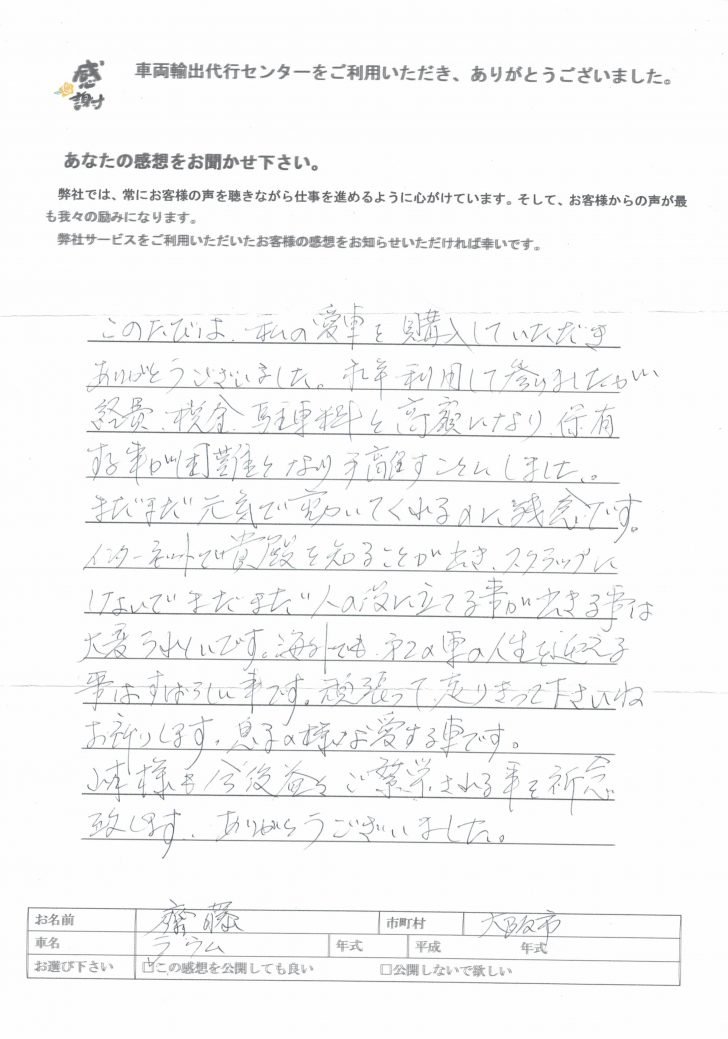 感謝
車両輸出代行センターをご利用いただき、ありがとうございました。
あなたの感想をお聞かせ下さい。
弊社では、常にお客様の声を聴きながら仕事を進めるように心がけています。そして、お客様からの声が最
も我々の励みになります。
弊社サービスをご利用いただいたお客様の感想をお知らせいただければ幸いです。
このたびは、私の愛車を購入していただき
ありがとうございました。永年利用して参りましたが
経費、税金、駐車料と高額になり、保有
する事が困難となり手離すことにしました。
まだまだ元気で動いてくれるのに残念です。
インターネットで貴殿を知ることが出き、スクラップに
しないでまだまだ人の役に立てる事が出きる事は
大変うれしいです。海外でも第2の車の人生を迎える
事はすばらしい事です。頑張って走りきって下さいね
お祈りします。息子の様な愛する車です。
様も今後益々ご繁栄される事を祈念
致します。ありがとうございました。
お名前 齋藤 市町村 大阪市
車名 ラウム 年式 平成 年式
お選び下さい ☑この感想を公開しても良い □公開しないで欲しい